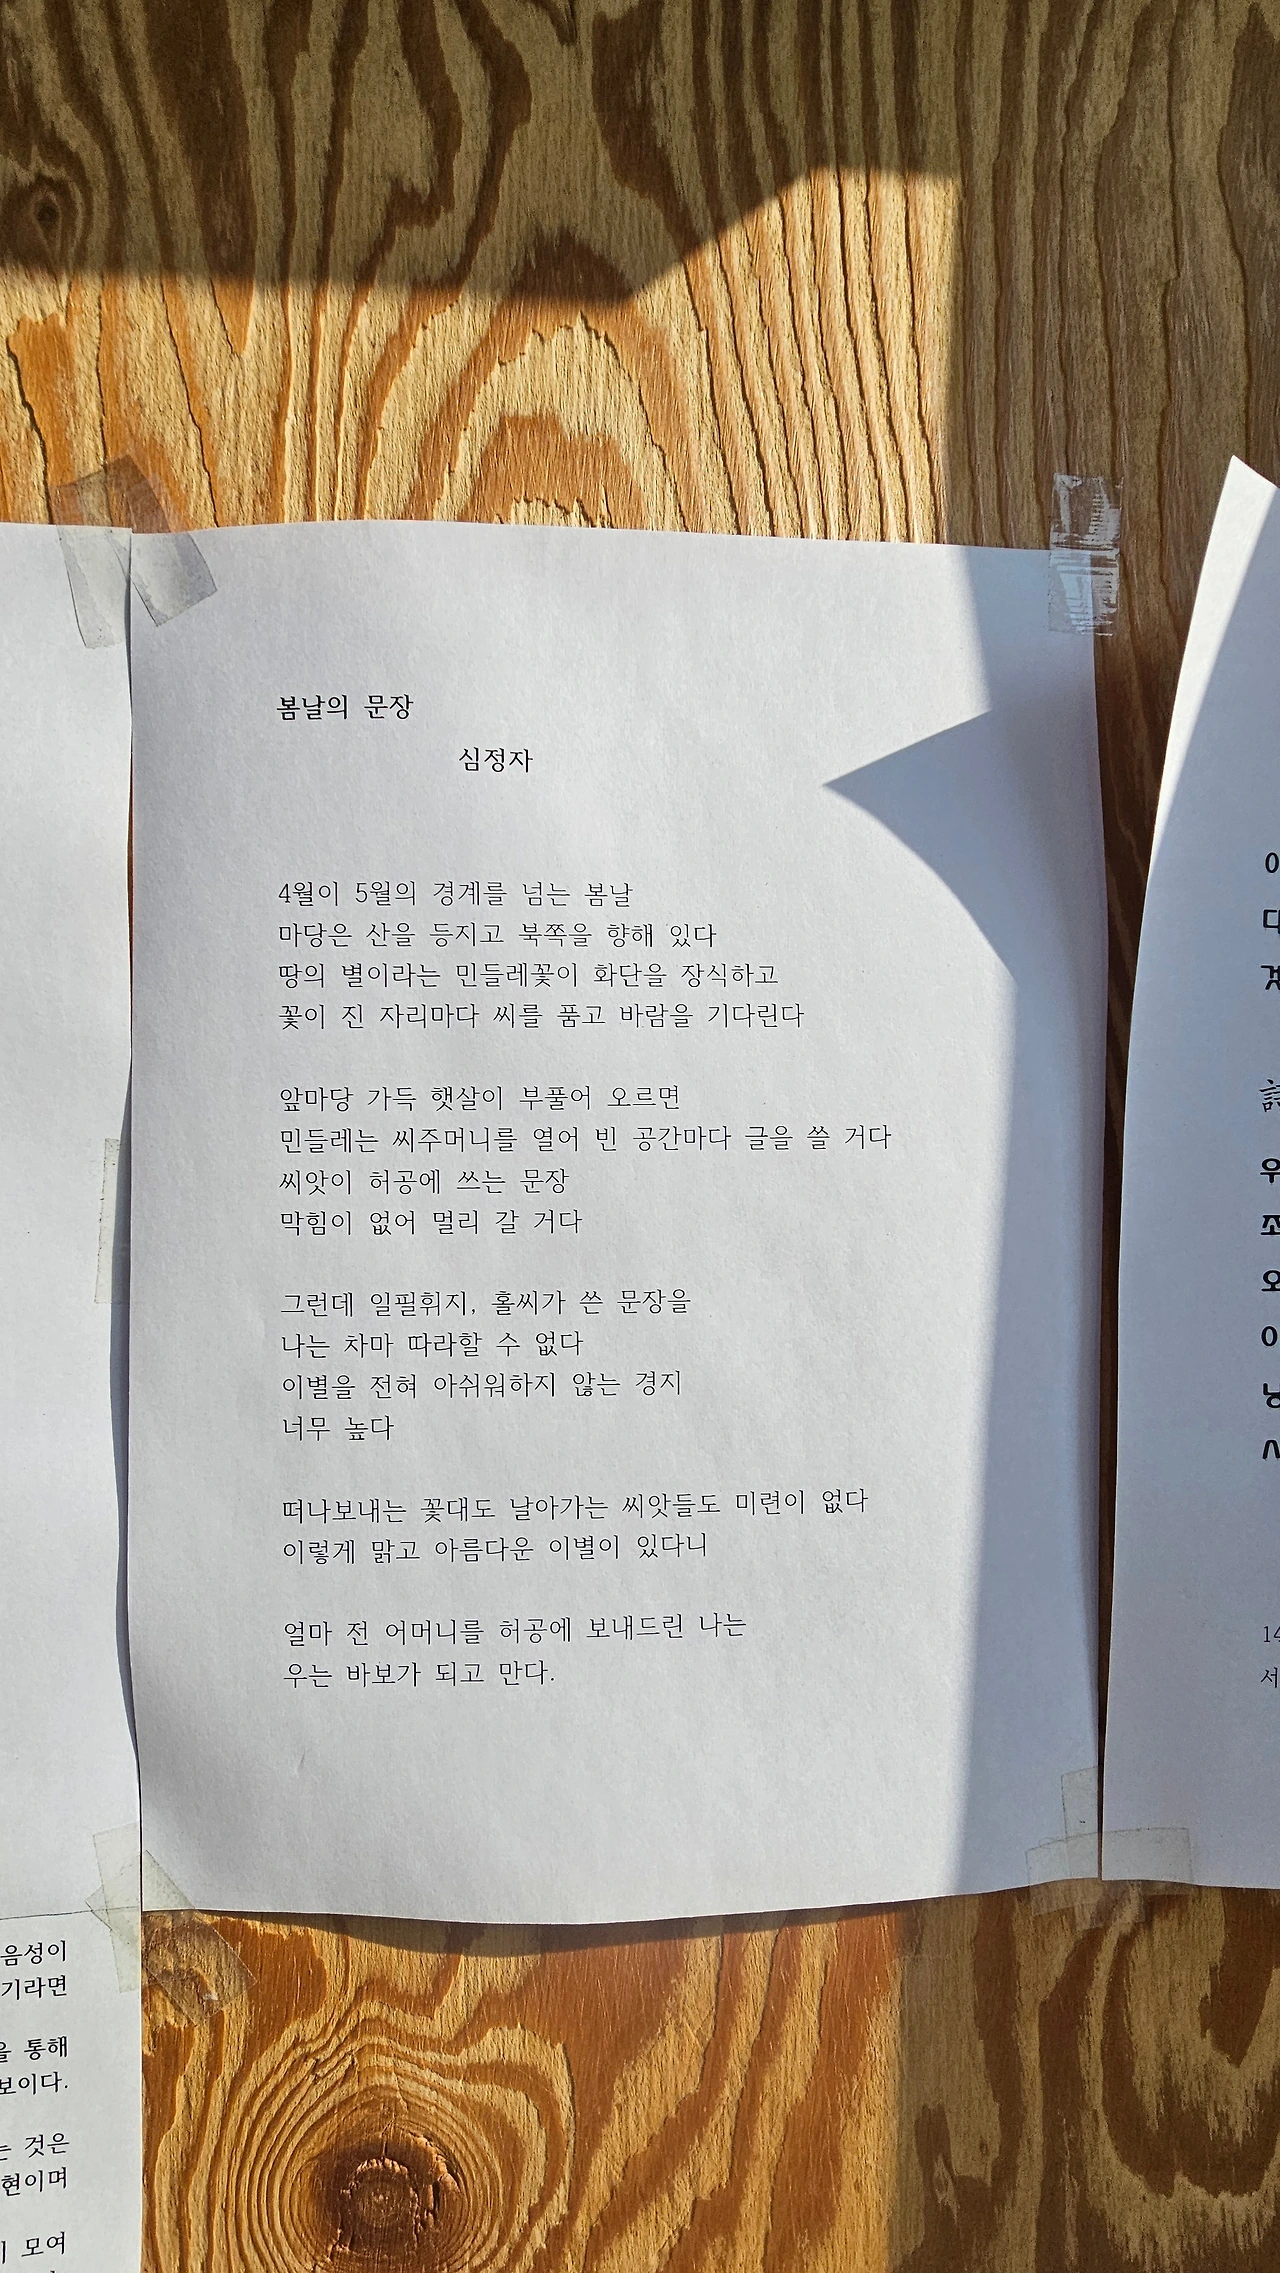 봄날의 문장
심정자
4월이 5월의 경계를 넘는 봄날
마당은 산을 등지고 북쪽을 향해 있다
땅의 별이라는 민들레꽃이 화단을 장식하고
꽃이 진 자리마다 씨를 품고 바람을 기다린다
앞마당 가득 햇살이 부풀어 오르면
민들레는 씨주머니를 열어 빈 공간마다 글을 쓸 거다
씨앗이 허공에 쓰는 문장
막힘이 없어 멀리 갈 거다
그런데 일필휘지, 홀씨가 쓴 문장을
나는 차마 따라할 수 없다
이별을 전혀 아쉬워하지 않는 경지
너무 높다
떠나보내는 꽃대도 날아가는 씨앗들도 미련이 없다
이렇게 맑고 아름다운 이별이 있다니
얼마 전 어머니를 허공에 보내드린 나는
우는 바보가 되고 만다.
음성이
기라면
통해
보이다.
것은
현이며
모여
우
오
14
서